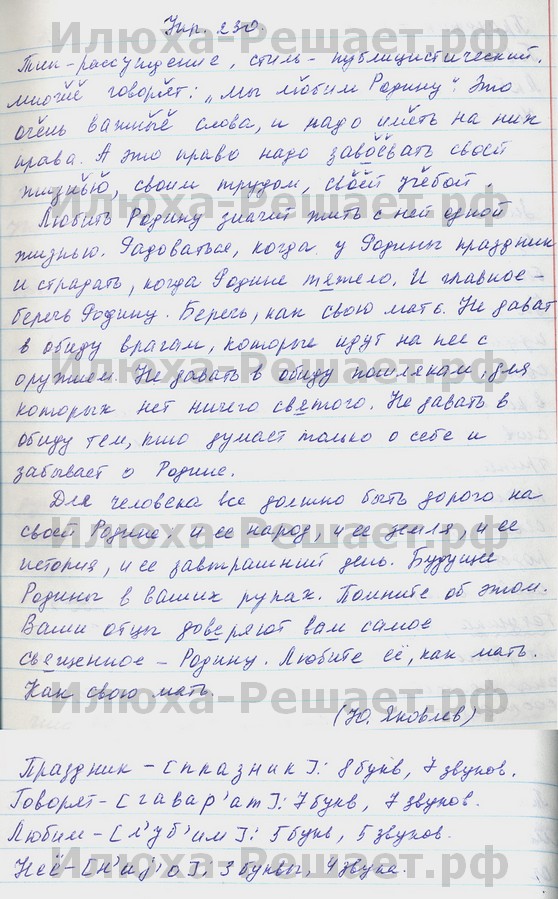 Упр. 230.
Тип - рассуждение, стиль - публицистический.
Многие говорят: „Мы любим Родину". Это
очень важные слова, и надо иметь на них
права. А это право надо завоевать своей
жизнью, своим трудом, своей учёбой.
Любить Родину значит жить с ней одной
жизнью. Радоваться, когда у Родины праздник
и страдать, когда Родине тяжело. И главное -
беречь Родину. Беречь, как свою мать. Не давать
в обиду врагам, которые идут на нее с
оружием. Не давать в обиду пошлякам, для
которых нет ничего святого. Не давать в
обиду тем, кто думает только о себе и
забывает о Родине.
Для человека все должно быть дорого на
своей Родине, и ее народ, и ее земля, и ее
история, и ее завтрашний день. Будущее
Родины в ваших руках. Помните об этом.
Ваши отцы доверяют вам самое
священное - Родину. Любите её, как мать.
Как свою мать.
(Ю. Яковлев)
Праздник - [празник]: 8 букв, 7 звуков.
Говорят - [гавар'ат]: 7 букв, 7 звуков.
Любим - [л'уб'им]: 5 букв, 5 звуков.
Неё - [н'иj'о]: 3 буквы, 4 звука.
Илюха-Решает.рф
Илюха-Решает.рф
Илюха-Решает.рф
Илюха-Решает.рф
Илюха-Решает.рф
Илюха-Решает.рф
Илюха-Решает.рф